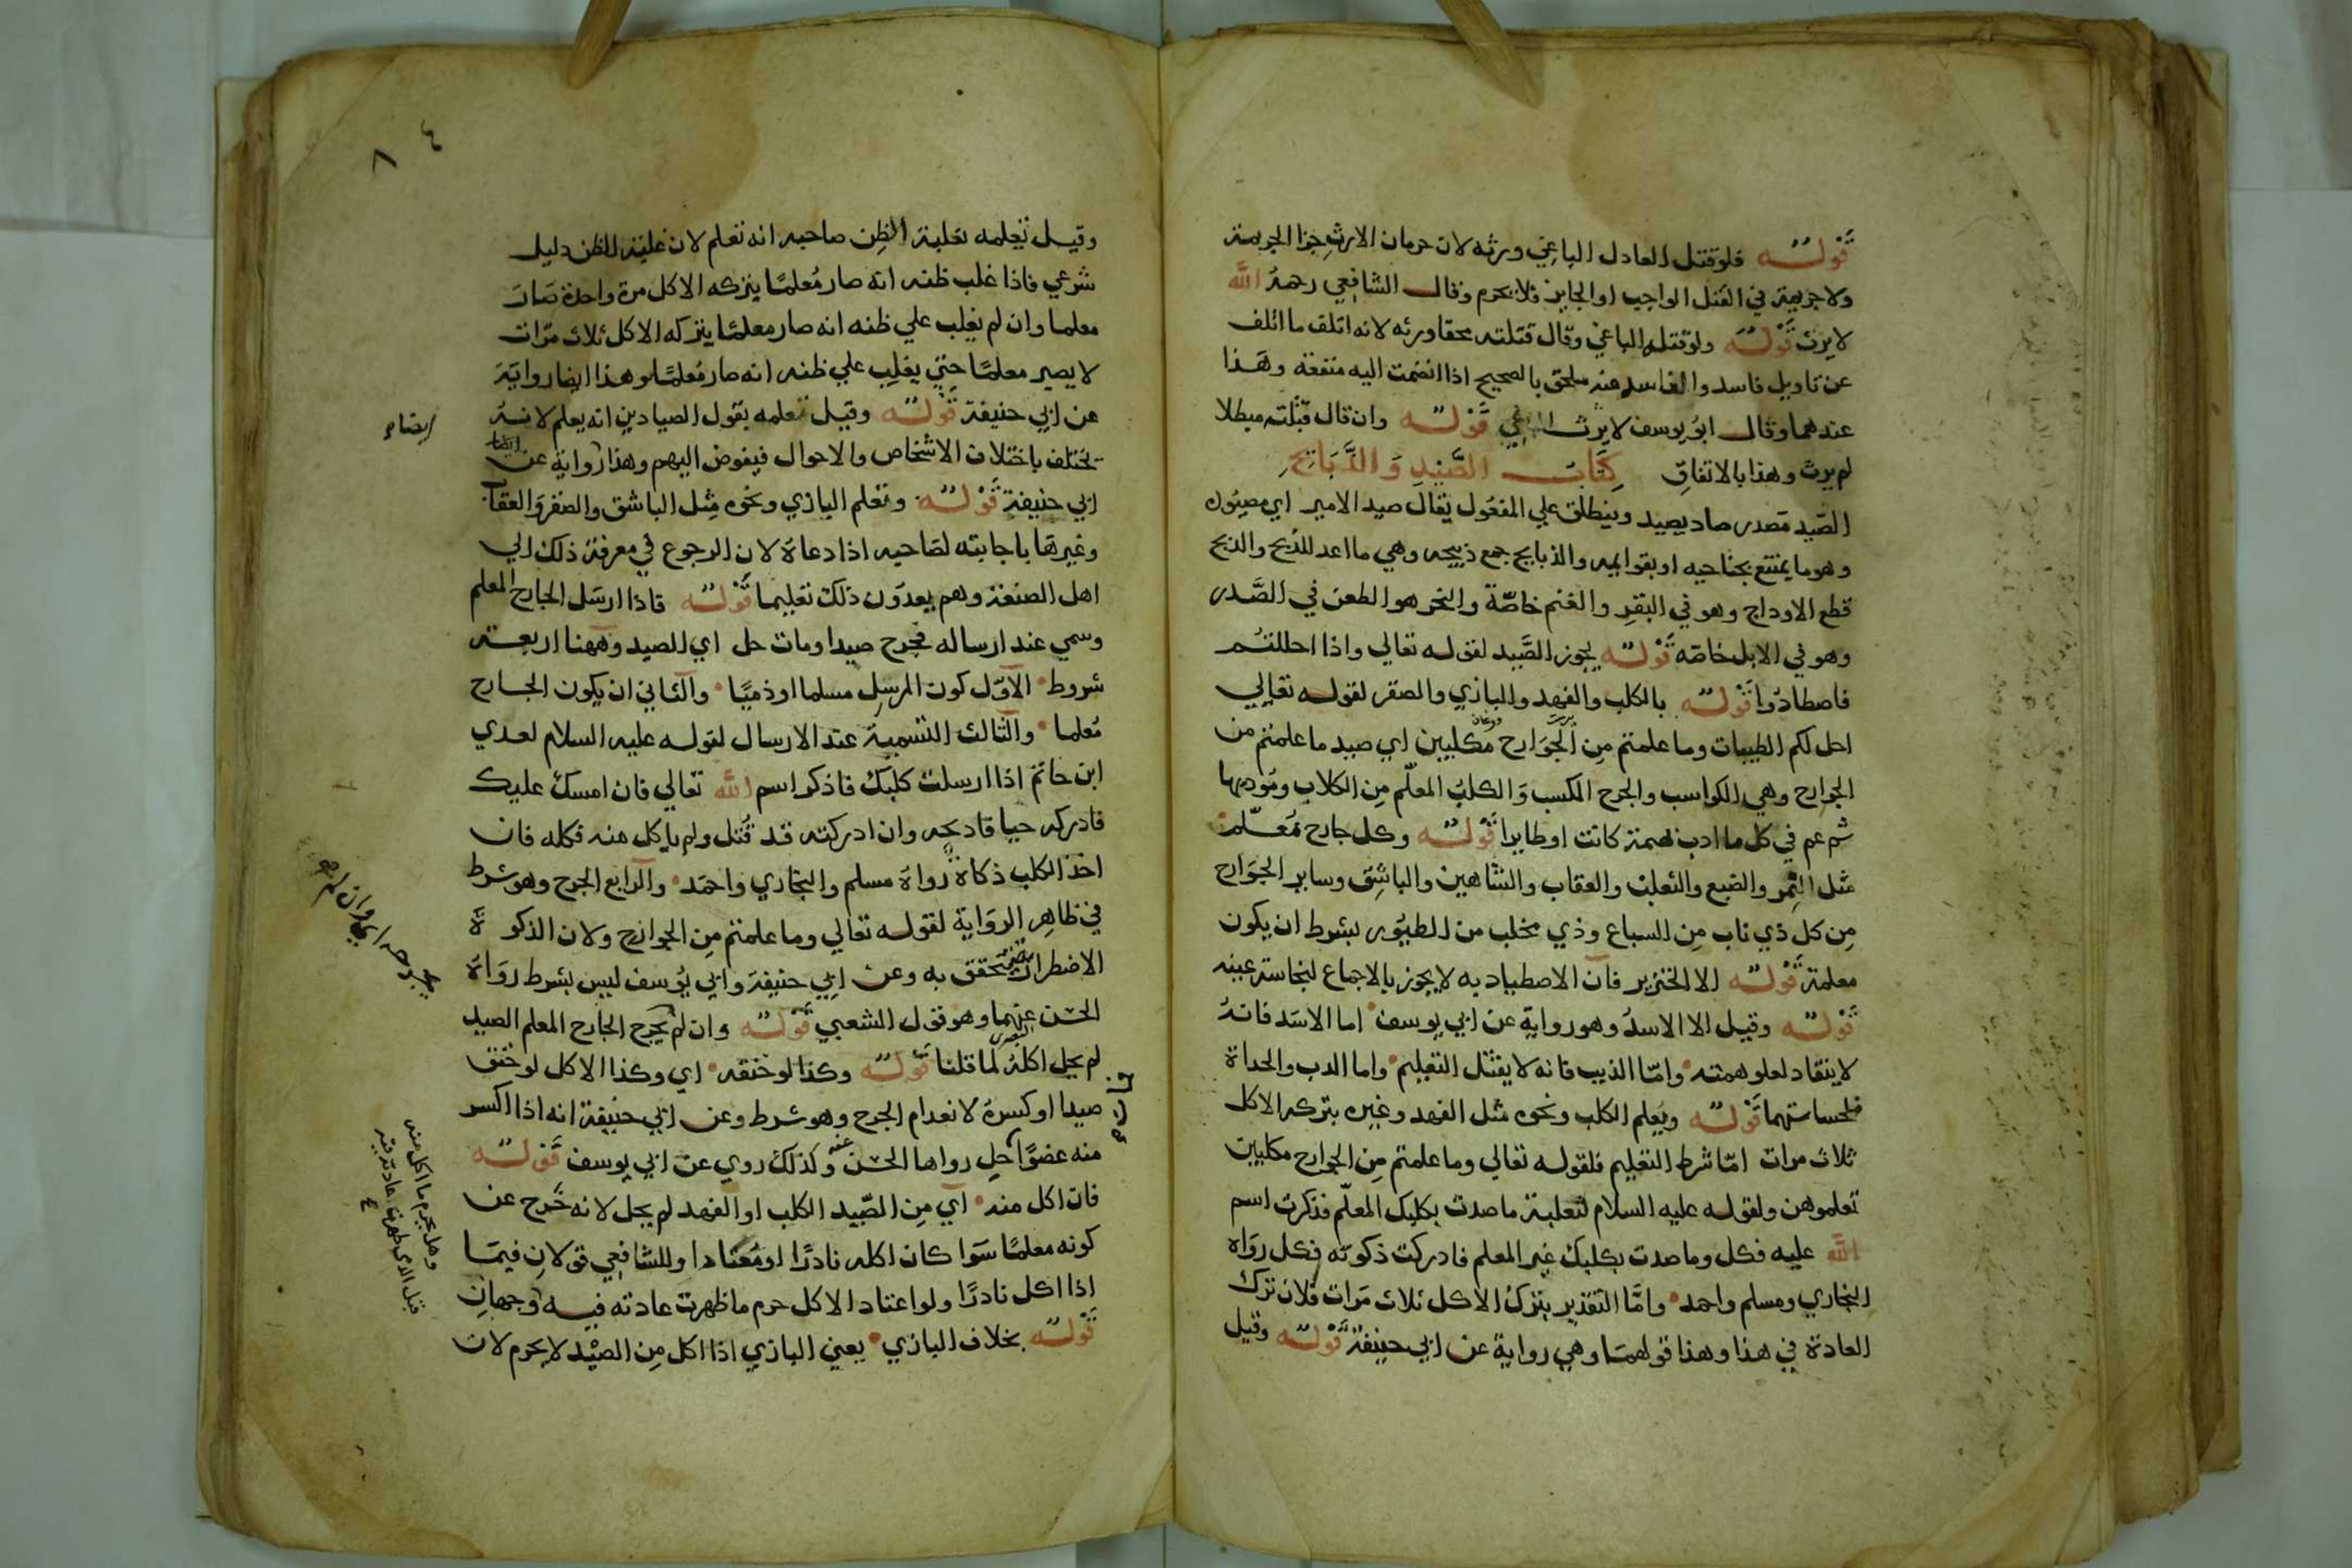 قوله فلو قتل العادل الباغي ورثه لان حرمان الارث جزا الجريمة
ولا جريمة في القتل الواجب او الجايز فلا يحرم وقال الشافعي رحمه الله
لا يرث قوله ولو قتله الباغي وقال قتلته محقا ورثه لانه اتلف ما اتلف
عن تاويل فاسد والفاسد منه ملحق بالصحيح اذا انضمت اليه منفعة وهذا
عندهما وقال ابو يوسف لا يرث الباغي قوله وان قال قتلته مبطلا
لم يرث وهذا بالاتفاق كتاب الصيد والذبائح
الصيد مصدر صاد يصيد وينطلق علي المفعول يقال صيد الامير اي مصيوده
وهو ما يمتنع بجناحيه او بقوايمه والذبايح جمع ذبيحه وهي ما اعد للذبح والذبح
قطع الاوداج وهو في البقر والغنم خاصة والنحر هو الطعن في الصدر
وهو في الابل خاصة قوله يجوز الصيد لقوله تعالي واذا احللتم
فاصطادوا قوله بالكلب والفهد والبازي والصقر لقوله تعالي
احل لكم الطيبات وما علمتم من الجوارح مكلبين اي صيد ما علمتم من
الجوارح وهي الكواسب والجرح الكسب والكلب المعلم من الكلاب ومودبها
ثم عم في كل ما ادب بهيمة كانت او طايرا قوله وكل جارح معلم
مثل النمر والضبع والثعلب والعقاب والشاهين والباشق وساير الجوارح
من كل ذي ناب من السباع وذي مخلب من الطيور بشرط ان يكون
معلمة قوله الا الخنزير فان الاصطياد به لا يجوز بالاجماع لنجاسة عينه
قوله وقيل الا الاسد وهو رواية عن ابي يوسف اما الاسد فانه
لا ينقاد لعلو همته واما الذيب فانه لا يقبل التعليم واما الدب والحداة
فلخساستهما قوله ويعلم الكلب ونحوه مثل الفهد وغيره بتركه الاكل
ثلاث مرات اما شرط التعليم فلقوله تعالي وما علمتم من الجوارح مكلبين
تعلمونهن ولقوله عليه السلام لثعلبة ما صدت بكلبك المعلم فذكرت اسم
الله عليه فكل وما صدت بكلبك غير المعلم فادركت ذكوته فكل رواه
البخاري ومسلم واحمد واما التقدير بترك الاكل ثلاث مرات فلان ترك
العادة في هذا وهذا قولهما وهي رواية عن ابي حنيفة قوله وقيل
٨ ٤
وقيل تعلمه بغلبة الظن صاحبه انه تعلم لان غلبة الظن دليل
شرعي فاذا غلب ظنه انه صار معلما بتركه الاكل مرة واحدة صار
معلما وان لم يغلب علي ظنه انه صار معلما بتركه الاكل ثلاث مرات
لا يصير معلما حتي يغلب علي ظنه انه صار معلما وهذا ايضا رواية
عن ابي حنيفة قوله وقيل تعلمه بقول الصيادين انه يعلم لانه
يختلف باختلاف الاشخاص والاحوال فيفوض اليهم وهذا رواية عن ايضا
ابي حنيفة قوله وتعلم البازي ونحوه مثل الباشق والصقر والعقاب
وغيرها باجابته لصاحبه اذا دعاه لان الرجوع في معرفة ذلك الي
اهل الصنعة وهم يعدون ذلك تعليما قوله فاذا ارسل الجارح المعلم
وسمي عند ارساله فجرح صيدا ومات حل اي الصيد وههنا اربعة
شروط الاول كون المرسل مسلما او ذميا والثاني ان يكون الجارح
معلما والثالث التسمية عند الارسال لقوله عليه السلام لعدي
ابن حاتم اذا ارسلت كلبك فاذكر اسم الله تعالي فان امسك عليك
فادركه حيا فاذبحه وان ادركته قد قتل ولم ياكل منه فكله فان
اخذ الكلب ذكاة رواه مسلم والبخاري واحمد والرابع الجرح وهو شرط
في ظاهر الرواية لقوله تعالي وما علمتم من الجوارح ولان الذكوة
الاضطرارية تتحقق به وعن ابي حنيفة وابي يوسف ليس بشرط رواه
الحسن عنهما وهو قول الشعبي قوله وان لم يجرح الجارح المعلم الصيد
لم يحل اكله لما قلنا قوله وكذا لو خنقه اي وكذا الاكل لو خنق
صيدا او كسره لانعدام الجرح وهو شرط وعن ابي حنيفة انه اذا اكسر
منه عضوا حل رواها الحسن عنه وكذلك روي عن ابي يوسف قوله
فان اكل منه اي من الصيد الكلب او الفهد لم يحل لانه خرج عن
كونه معلما سوا كان اكله نادرا او معتادا وللشافعي قولان فيما
اذا اكل نادرا ولو اعتاد الاكل حرم ما ظهرت عادته فيه وجهان
قوله بخلاف البازي يعني البازي اذا اكل من الصيد لا يحرم لان
ايضاء
وهل يحرم ما اكل منه
قبل الذي ظهرت عادته فيه